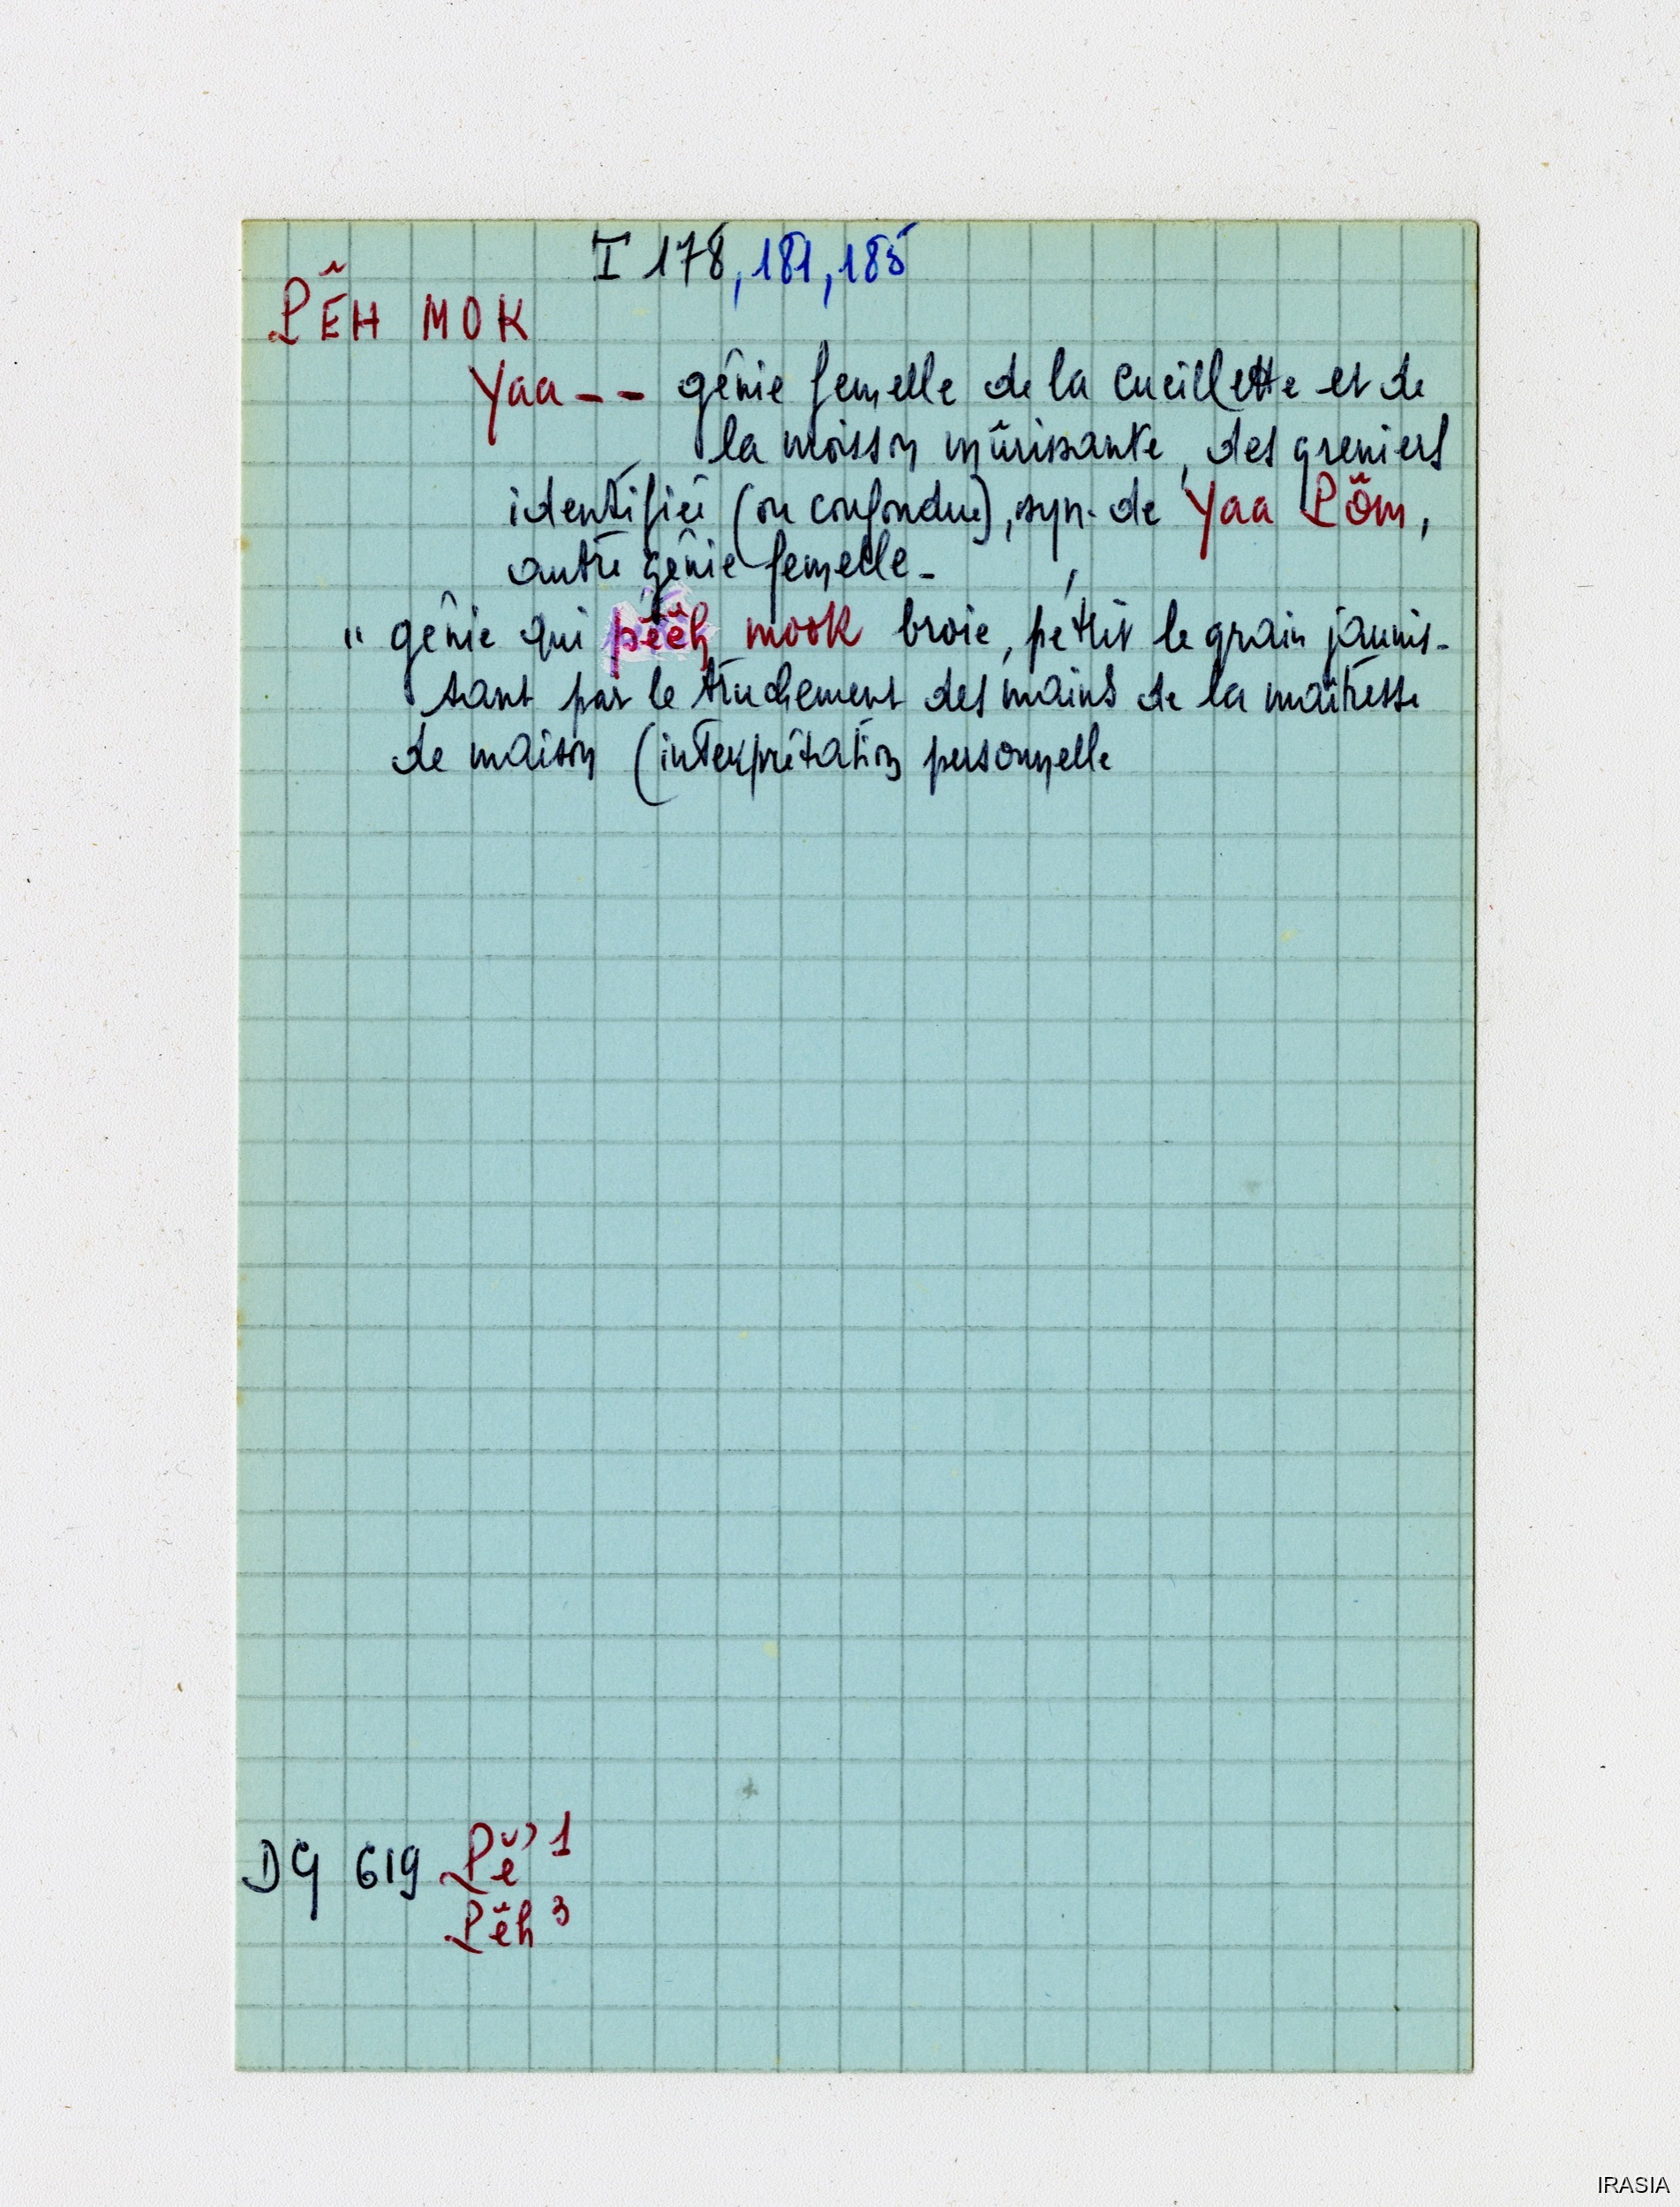 I 178, 181, 185
PÊH MOK
Yaa -- génie femelle de la cueillette et de
la moisson mûrissante, des greniers
identifiée (ou confondue), syn. de Yaa Pôm,
autre génie femelle -
" génie qui pêêh mook broie, pétrit le grain jaunis-
sant par le truchement des mains de la maîtresse
de maison (interprétation personnelle
DG 619 Pĕ' 1
Pêh 3
IRASIA